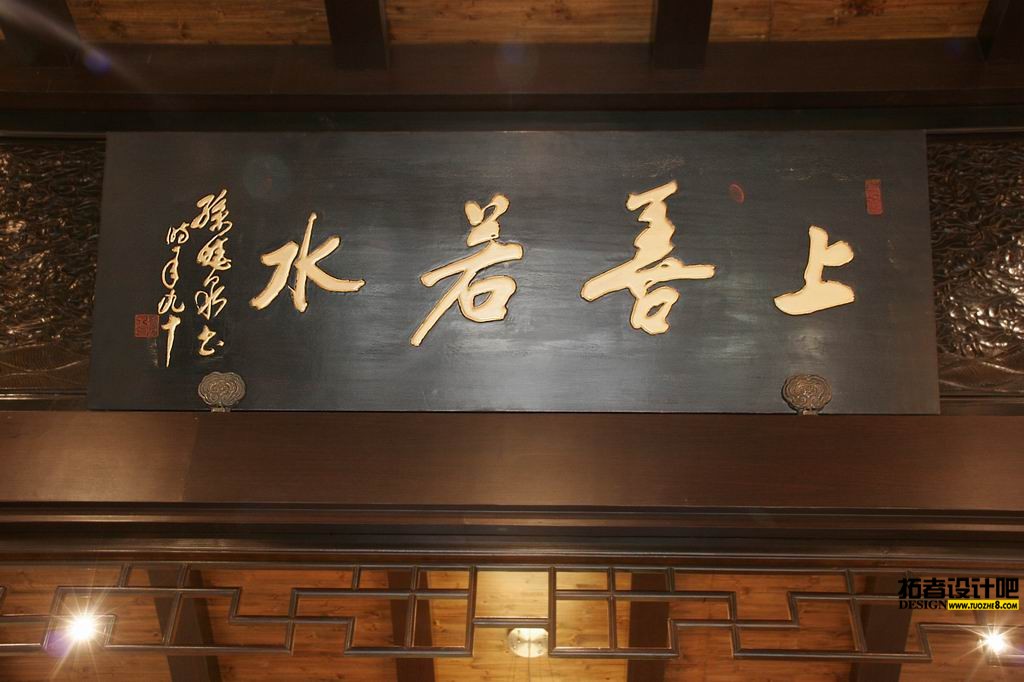 上善若水
孫曉泉书
时年九十
拓者设计吧
DESIGN www.tuozhe8.com